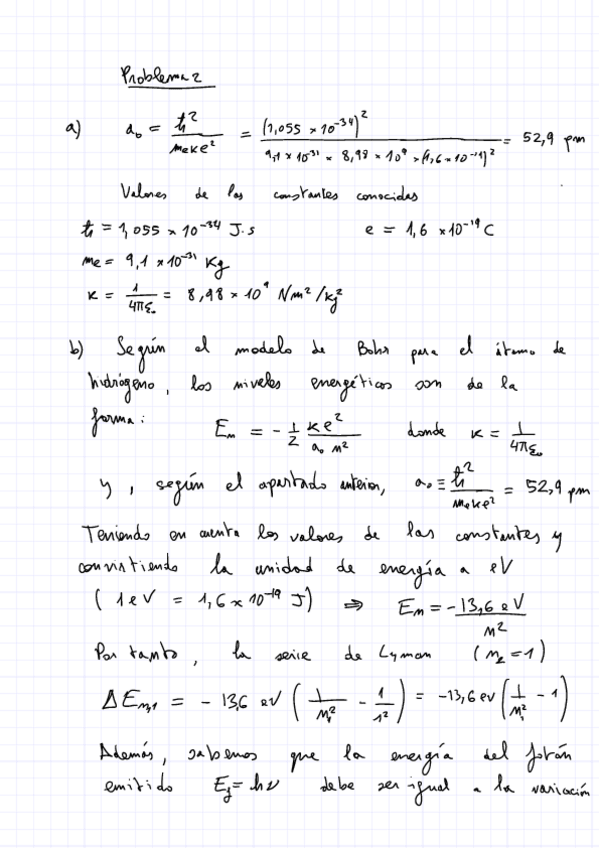 Problema 2
a) a₀ = ħ² / meke² = (1,055 × 10⁻³⁴)² / 9,1 × 10⁻³¹ × 8,98 × 10⁹ × (1,6 × 10⁻¹⁹)² = 52,9 pm
Valores de las constantes conocidas
ħ = 1,055 × 10⁻³⁴ J·s e = 1,6 × 10⁻¹⁹ C
me = 9,1 × 10⁻³¹ Kg
K = 1 / 4πε₀ = 8,98 × 10⁹ Nm²/kg²
b) Según el modelo de Bohr para el átomo de
hidrógeno, los niveles energéticos son de la
forma: Em = - 1/2 ke² / a₀ m² donde K = 1 / 4πε₀
y, según el apartado anterior, a₀ ≡ ħ² / meke² = 52,9 pm
Teniendo en cuenta los valores de las constantes y
convirtiendo la unidad de energía a eV
(1eV = 1,6 × 10⁻¹⁹ J) ⇒ Em = -13,6 eV / m²
Por tanto, la serie de Lyman (m₂ = 1)
ΔEm,1 = - 13,6 eV (1/m₁² - 1/1²) = -13,6 eV (1/m₁² - 1)
Además, sabemos que la energía del fotón
emitido Eɣ = hν debe ser igual a la variación